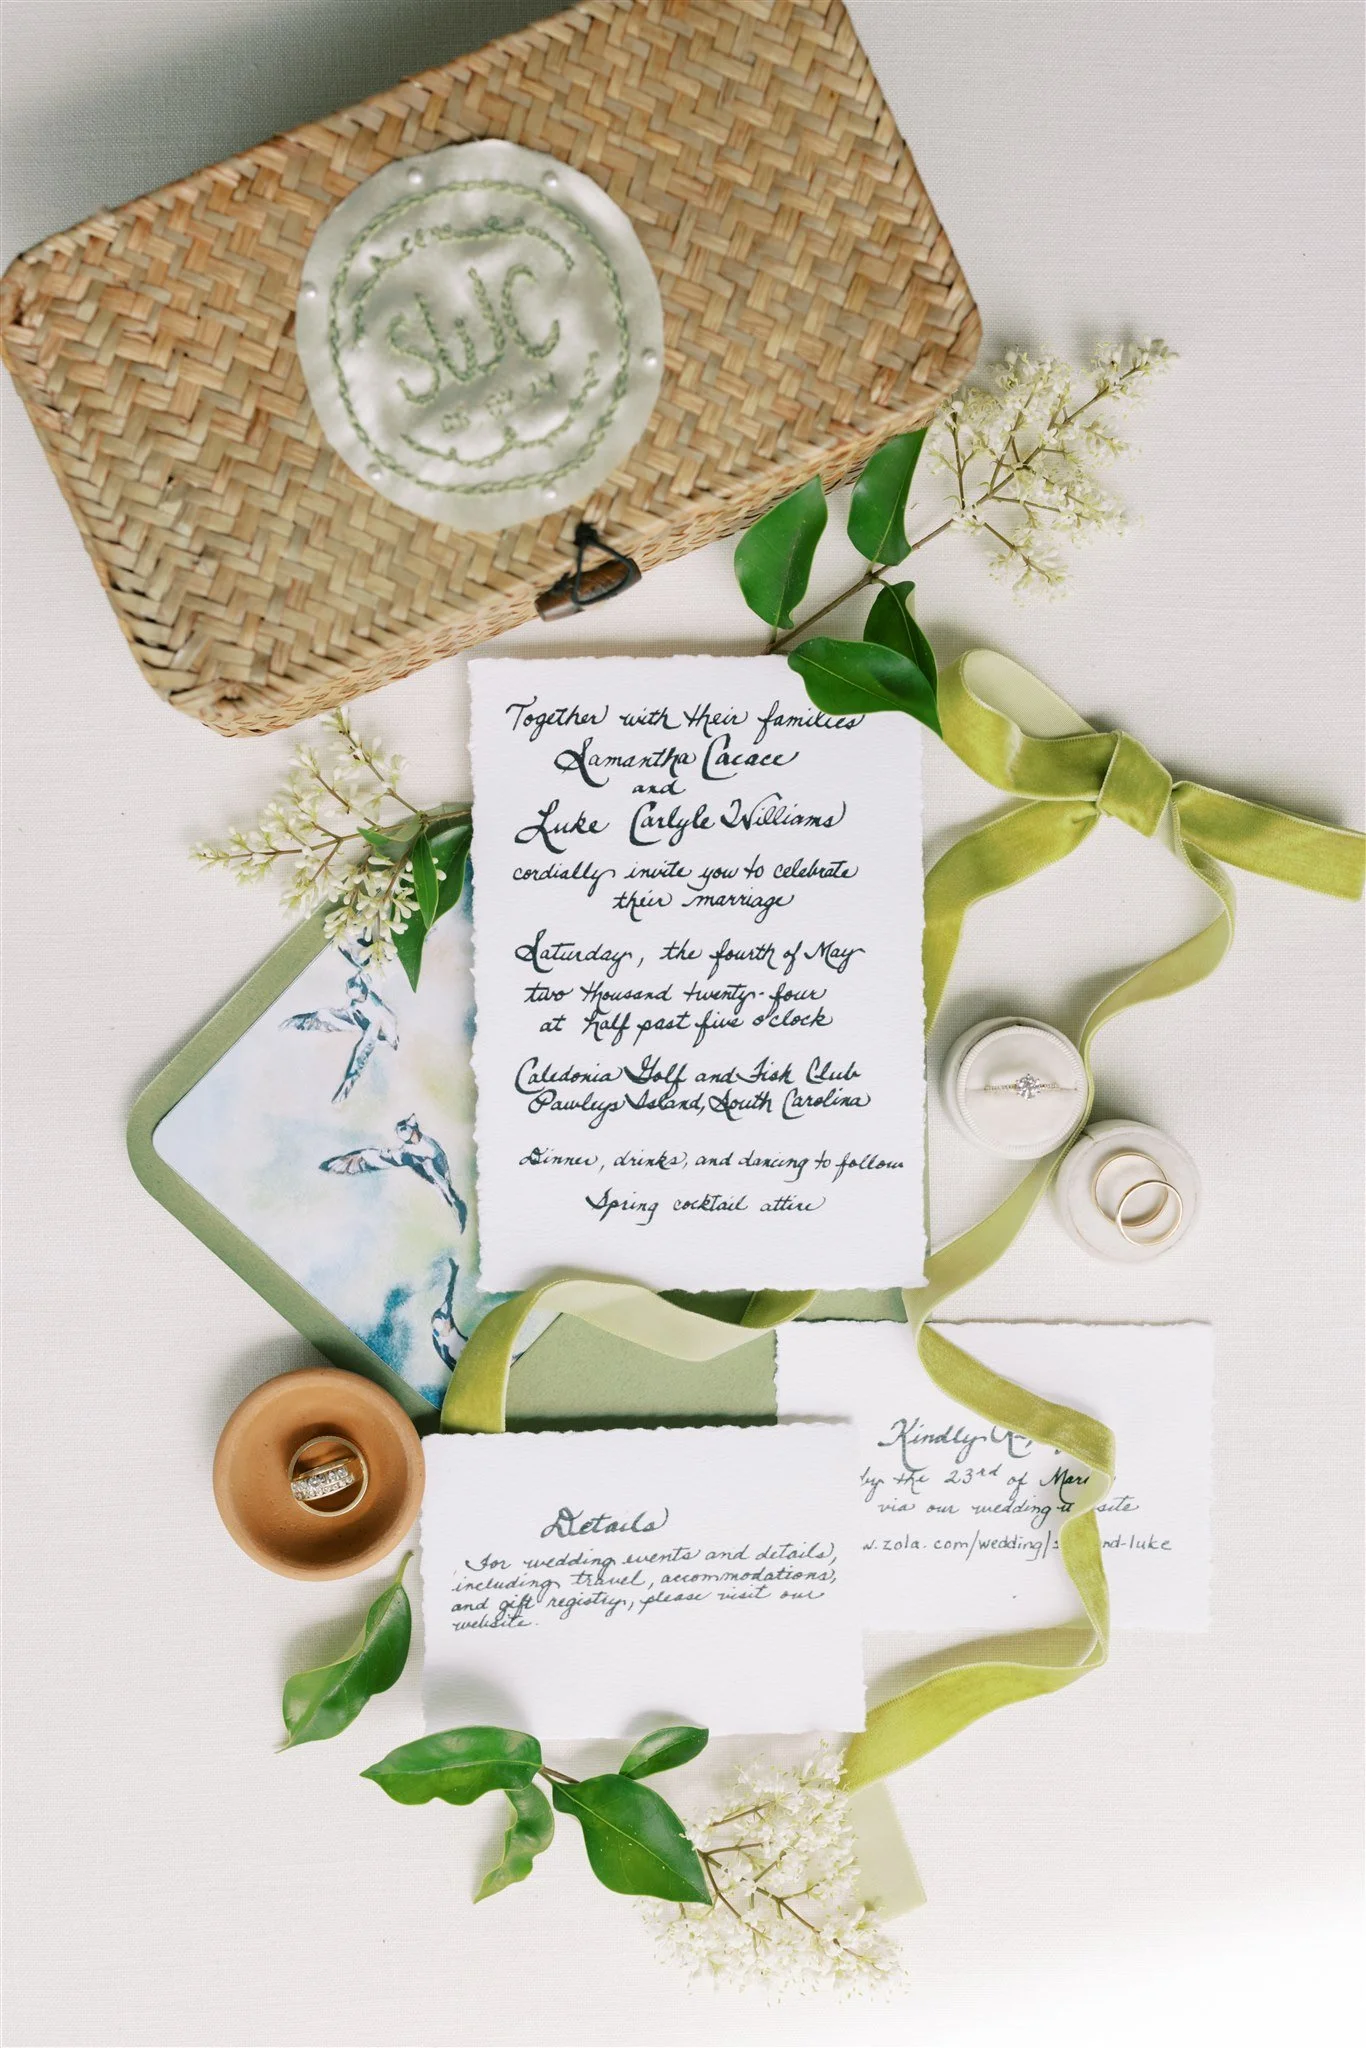 SWC
Together with their families
Samantha Cacace
and
Luke Carlyle Williams
cordially invite you to celebrate
their marriage
Saturday, the fourth of May
two thousand twenty-four
at half past five o'clock
Caledonia Golf and Fish Club
Pawleys Island, South Carolina
Dinner, drinks, and dancing to follow
Spring cocktail attire
Kindly
by the 23rd of
via our wedding
.zola.com/wedding/
nd-luke
Details
For wedding events and details,
including travel, accommodations,
and gift registry, please visit our
website.